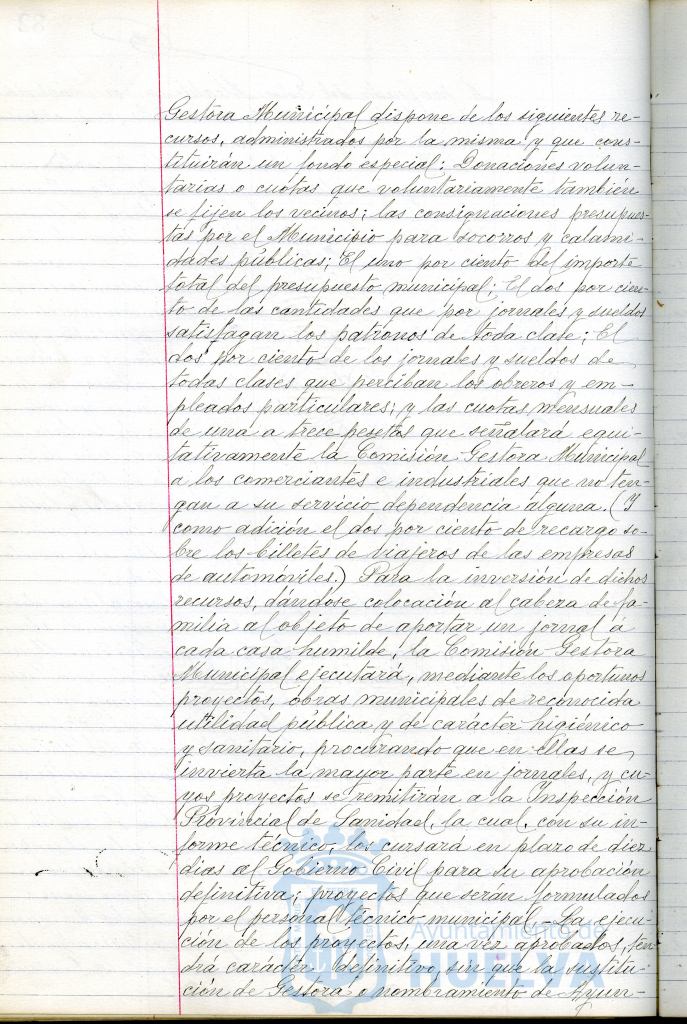 Gestora Municipal dispone de los siguientes re-
cursos, administrados por la misma y que cons-
tituirán un fondo especial: Donaciones volun-
tarias o cuotas que voluntariamente tambien
se fijen los vecinos; las consignaciones presupues-
tas por el Municipio para socorros y calami-
dades públicas; El uno por ciento del importe
total del presupuesto municipal; El dos por cien-
to de las cantidades que por jornales y sueldos
satisfagan los patronos de toda clase; El
dos por ciento de los jornales y sueldos de
todas clases que perciban los obreros y em-
pleados particulares; y las cuotas mensuales
de una a trece pesetas que señalará equi-
tativamente la Comisión Gestora Municipal
a los comerciantes e industriales que no ten-
gan a su servicio dependencia alguna. (Y
como adición el dos por ciento de recargo so-
bre los billetes de viajeros de las empresas
de automóviles.) Para la inversión de dichos
recursos, dándose colocación al cabeza de fa-
milia al objeto de aportar un jornal a
cada casa humilde, la Comisión Gestora
Municipal ejecutará, mediante los oportunos
proyectos, obras municipales de reconocida
utilidad pública y de carácter higiénico
y sanitario, procurando que en ellas se
invierta la mayor parte en jornales, y cu-
yos proyectos se remitirán a la Inspección
Provincial de Sanidad, la cual, con su in-
forme técnico, los cursará en plazo de diez
dias al Gobierno Civil para su aprobación
definitiva; proyectos que serán formulados
por el personal técnico municipal.- La ejecu-
ción de los proyectos, una vez aprobados, ten-
drá carácter definitivo, sin que la sustitu-
ción de Gestora o nombramiento de Ayun-
Ayuntamiento de
HUELVA